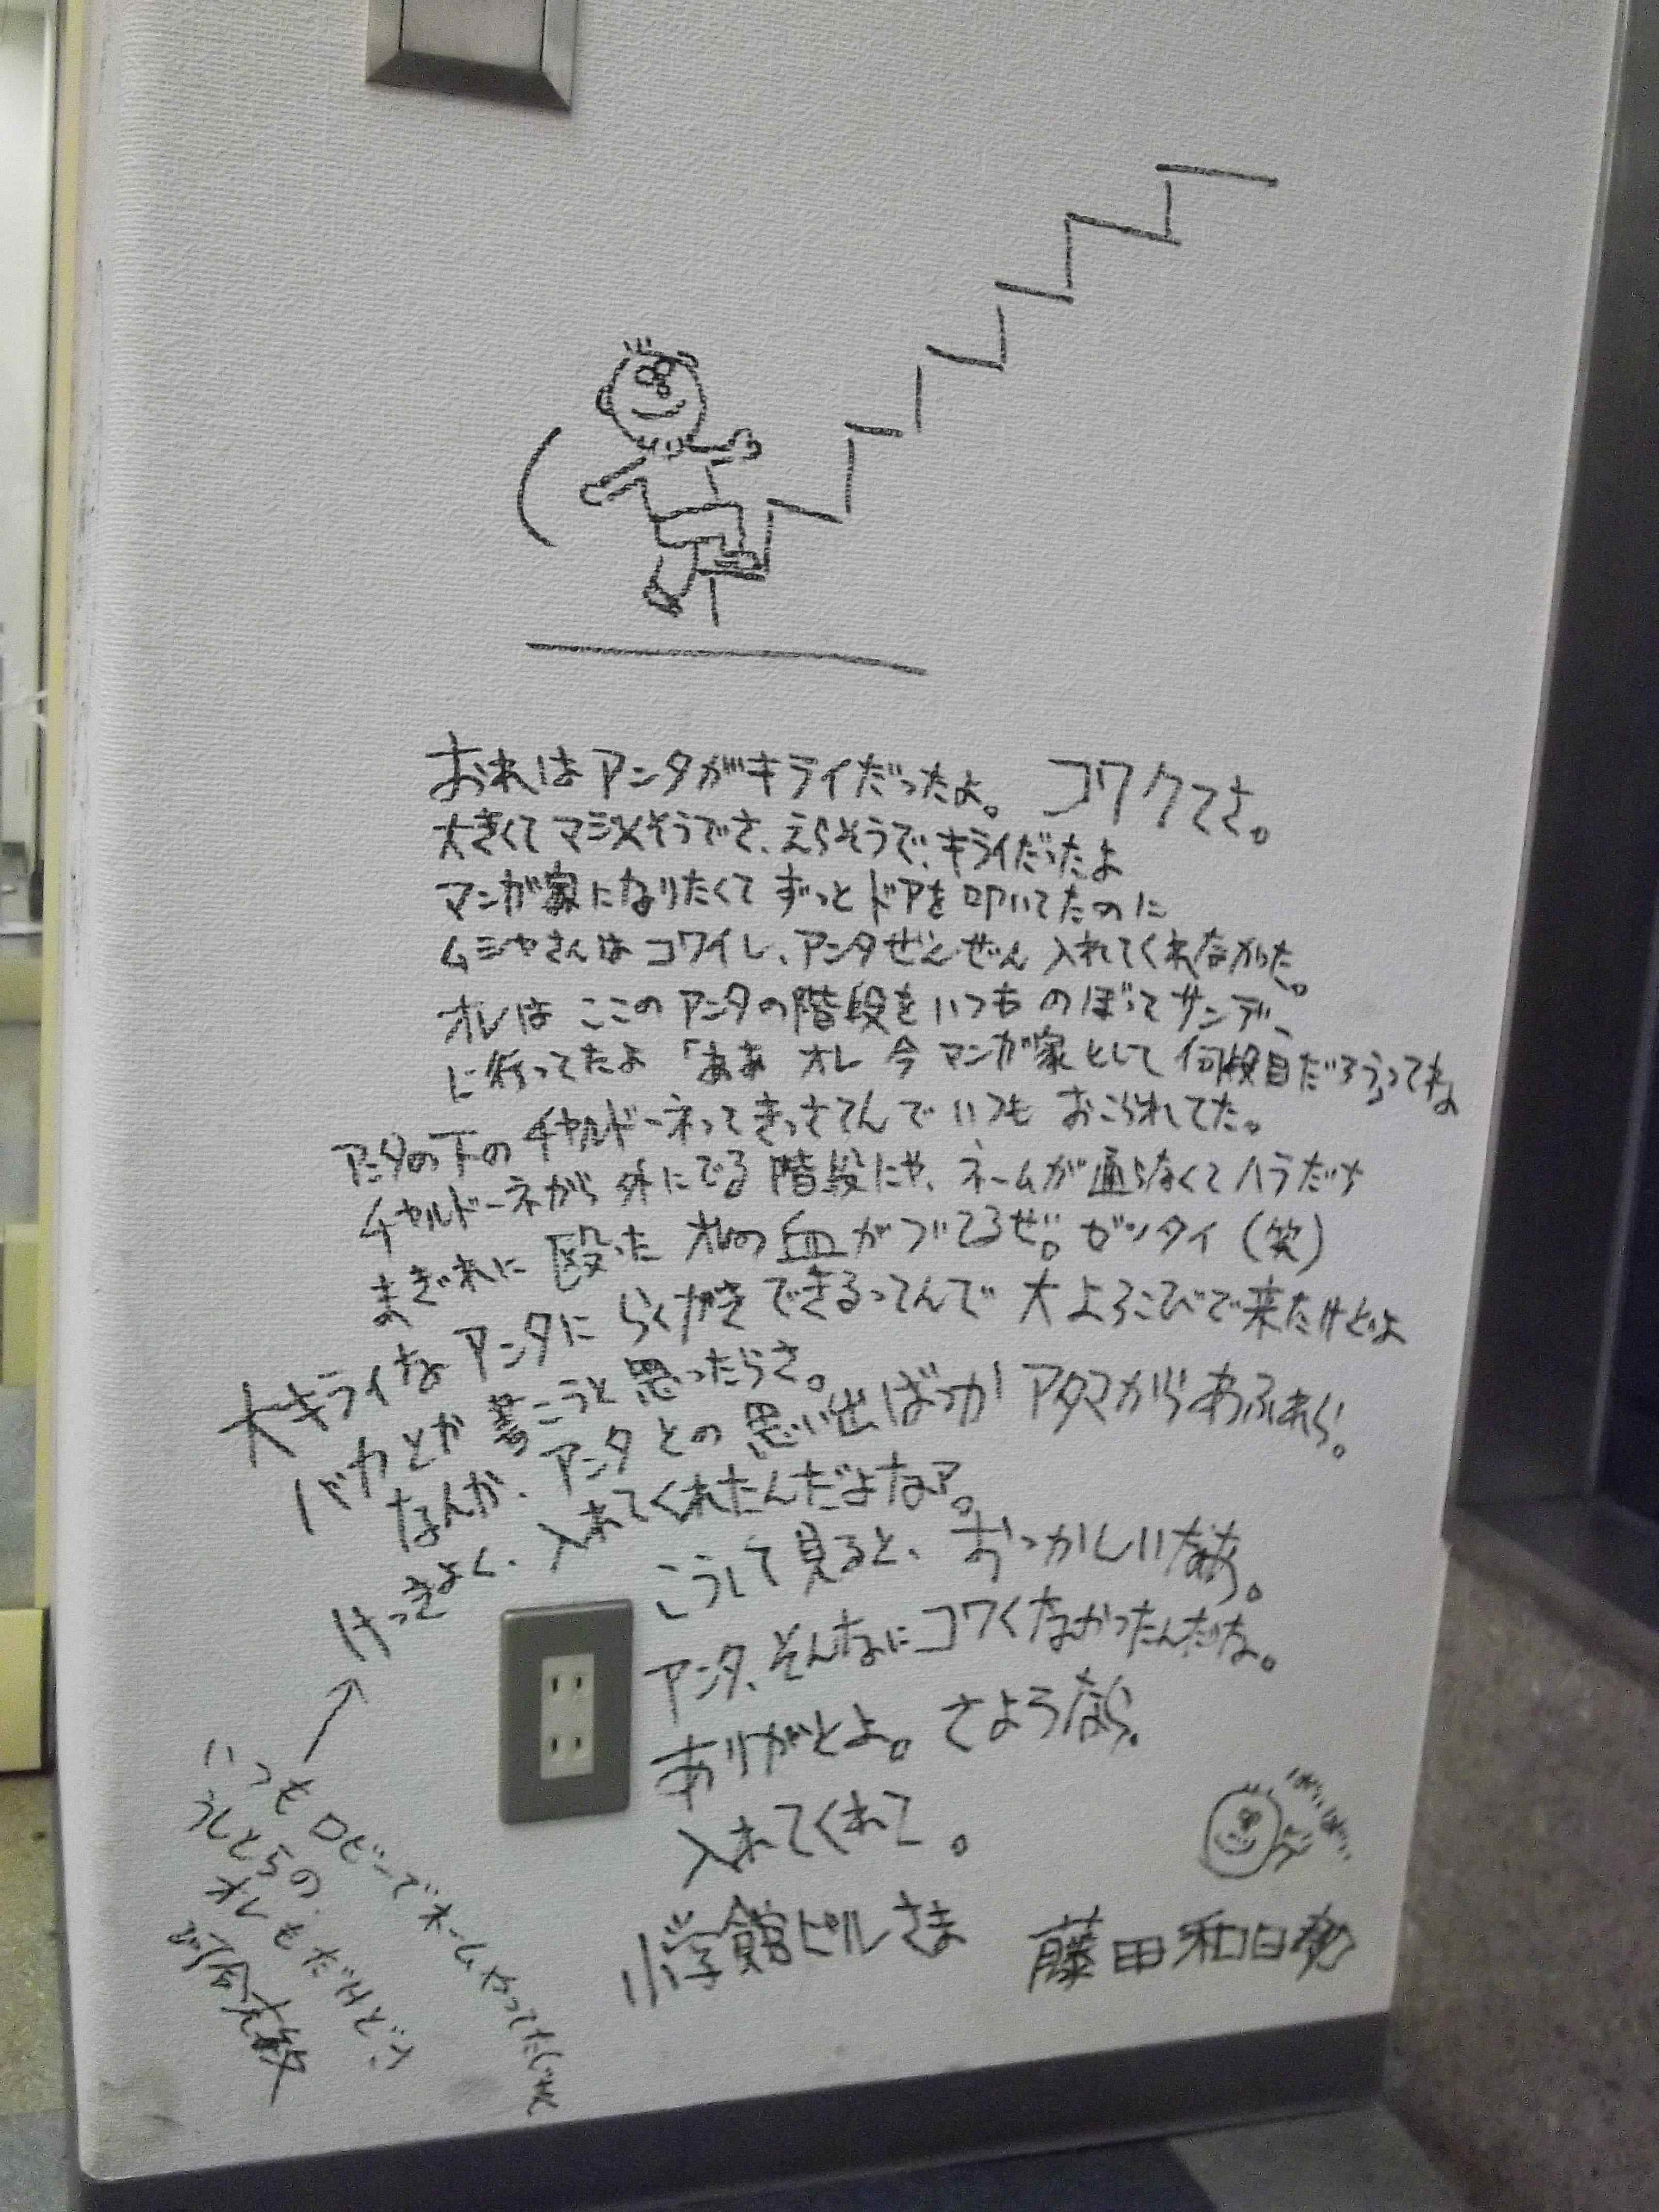 おれはアンタがキライだったよ。コワクてさ。
大きくてマジメそうでさ、えらそうで、キライだったよ
マンガ家になりたくてずっとドアを叩いてたのに
ムシャさんはコワイし、アンタぜんぜん入れてくれなかった。
オレはここのアンタの階段をいつものぼってサンデー
に行ってたよ「ああ オレ 今 マンガ家として何段目だろう」ってね
アンタの下のチャルドーネってきっさてんでいつもおこられてた。
チャルドーネから外にでる階段にゃ、ネームが通らなくてハラだち
まぎれに殴ったオレの血がついてるぜ。ゼッタイ(笑)
大キライなアンタにらくがきできるってんで大よろこびで来たけどよ
バカとか書こうと思ったらさ。
なんか、アンタとの思い出ばっかアタマからあふれら。
けっきょく、入れてくれたんだよなァ。
こうして見ると、おっかしいなあ。
アンタ、そんなにコワくなかったんだな。
ありがとよ。さようなら。
入れてくれて。
小学館ビルさま
藤田和日郎
ばいばい
いつもロビーでネームやってた
うしとらの
オレもだけど